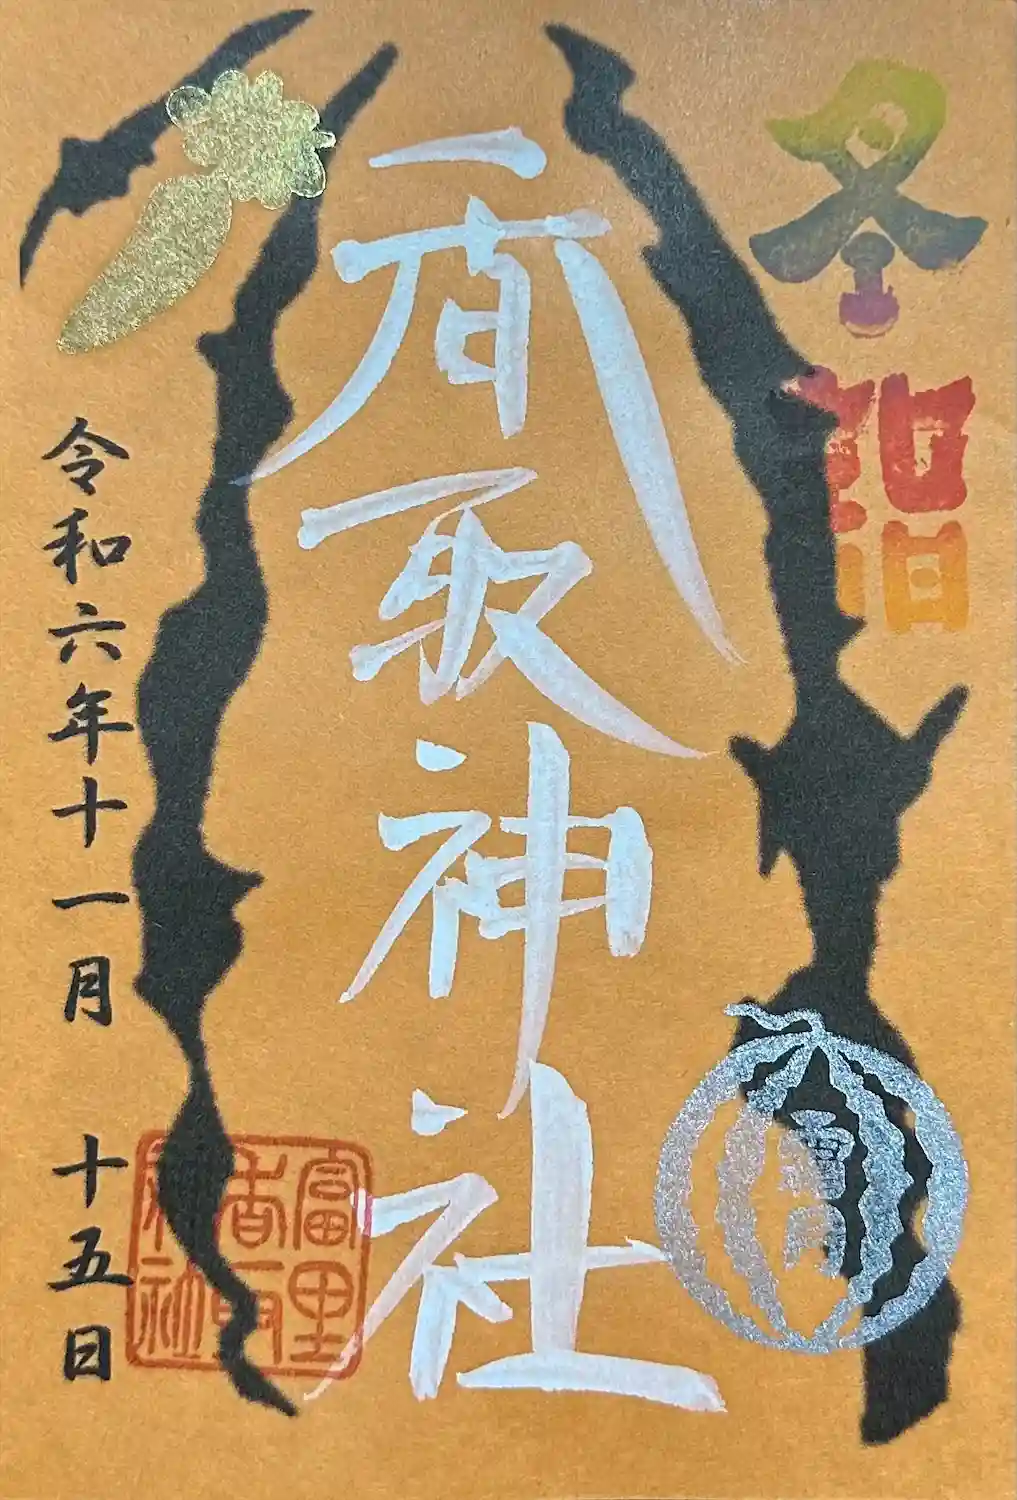 冬詣
香取神社
令和六年十一月 十五日
富里
香取
神社
霜月